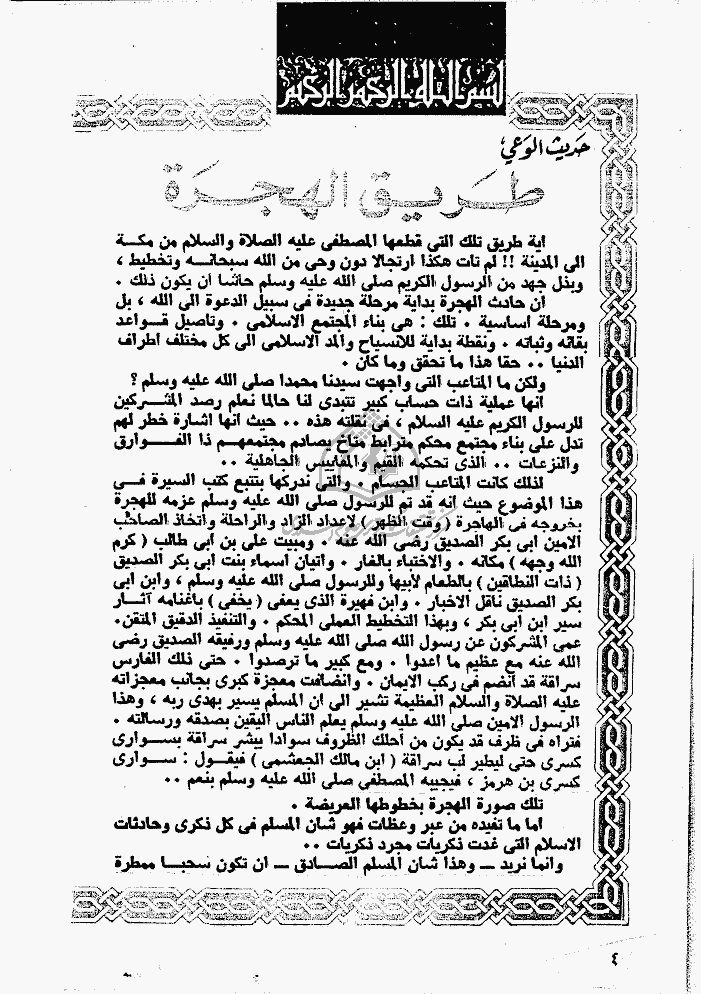 بسم الله الرحمن الرحيم
حديث الوعي
طريق الهجرة
اية طريق تلك التى قطعها المصطفى عليه الصلاة والسلام من مكة
الى المدينة !! لم تات هكذا ارتجالا دون وحى من الله سبحانه وتخطيط ،
وبذل جهد من الرسول الكريم صلى الله عليه وسلم حاشا ان يكون ذلك .
ان حادث الهجرة بداية مرحلة جديدة فى سبيل الدعوة الى الله ، بل
ومرحلة اساسية . تلك : هى بناء المجتمع الاسلامى . وتاصيل قواعد
بقائه وثباته . ونقطة بداية للانسياح والمد الاسلامى الى كل مختلف اطراف
الدنيا .. حقا هذا ما تحقق وما كان .
ولكن ما المتاعب التى واجهت سيدنا محمدا صلى الله عليه وسلم ؟
انها عملية ذات حساب كبير تتبدى لنا حالما نعلم رصد المشركين
للرسول الكريم عليه السلام ، فى نقلته هذه .. حيث انها اشارة خطر لهم
تدل على بناء مجتمع محكم مترابط متاخ يصادم مجتمعهم ذا الفوارق
والنزعات .. الذى تحكمه القيم والمقاييس الجاهلية ..
لذلك كانت المتاعب الجسام . والتى ندركها بتتبع كتب السيرة فى
هذا الموضوع حيث انه قد تم للرسول صلى الله عليه وسلم عزمه للهجرة
بخروجه فى الهاجرة ( وقت الظهر ) لاعداد الزاد والراحلة واتخاذ الصاحب
الامين ابى بكر الصديق رضى الله عنه . ومبيت على بن ابى طالب ( كرم
الله وجهه ) مكانه . والاختباء بالغار . واتيان اسماء بنت ابى بكر الصديق
( ذات النطاقين ) بالطعام لأبيها وللرسول صلى الله عليه وسلم ، وابن ابى
بكر الصديق ناقل الاخبار . وابن فهيرة الذى يعفى ( يخفى ) باغنامه آثار
سير ابن ابى بكر ، وبهذا التخطيط العملى المحكم . والتنفيذ الدقيق المتقن.
عمى المشركون عن رسول الله صلى الله عليه وسلم ورفيقه الصديق رضى
الله عنه مع عظيم ما اعدوا . ومع كبير ما ترصدوا . حتى ذلك الفارس
سراقة قد انضم فى ركب الايمان . وانضافت معجزة كبرى بجانب معجزاته
عليه الصلاة والسلام العظيمة تشير الى ان المسلم يسير بهدى ربه ، وهذا
الرسول الامين صلى الله عليه وسلم يعلم الناس اليقين بصدقه ورسالته .
فتراه فى ظرف قد يكون من أحلك الظروف سوادا يبشر سراقة بسوارى
كسرى حتى ليطير لب سراقة ( ابن مالك الجعشمى ) فيقول : سوارى
كسرى بن هرمز ، فيجيبه المصطفى صلى الله عليه وسلم بنعم ..
تلك صورة الهجرة بخطوطها العريضة .
اما ما تفيده من عبر وعظات فهو شان المسلم فى كل ذكرى وحادثات
الاسلام التى غدت ذكريات مجرد ذكريات ..
وانما نريد — وهذا شان المسلم الصادق — ان تكون سحبا ممطرة
٤